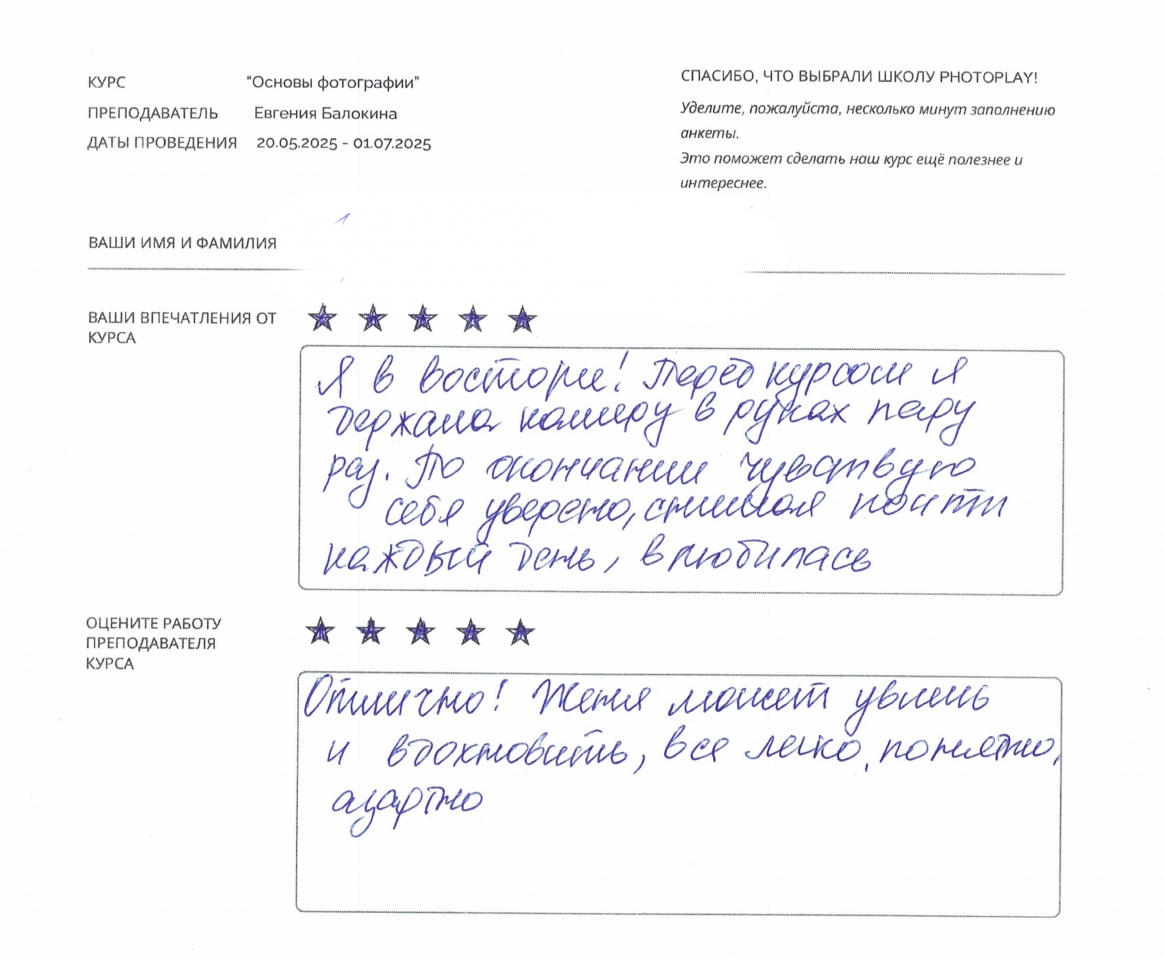 КУРС "Основы фотографии"
ПРЕПОДАВАТЕЛЬ Евгения Балокина
ДАТЫ ПРОВЕДЕНИЯ 20.05.2025 - 01.07.2025
СПАСИБО, ЧТО ВЫБРАЛИ ШКОЛУ PHOTOPLAY!
Уделите, пожалуйста, несколько минут заполнению
анкеты.
Это поможет сделать наш курс ещё полезнее и
интереснее.
ВАШИ ИМЯ И ФАМИЛИЯ
ВАШИ ВПЕЧАТЛЕНИЯ ОТ
КУРСА
Я в восторге! Перед курсом я
держала камеру в руках пару
раз. По окончании чувствую
себя уверено, снимая почти
каждый день, влюбилась
ОЦЕНИТЕ РАБОТУ
ПРЕПОДАВАТЕЛЯ
КУРСА
Отлично! Женя может увлечь
и вдохновить, все легко, понятно,
азартно